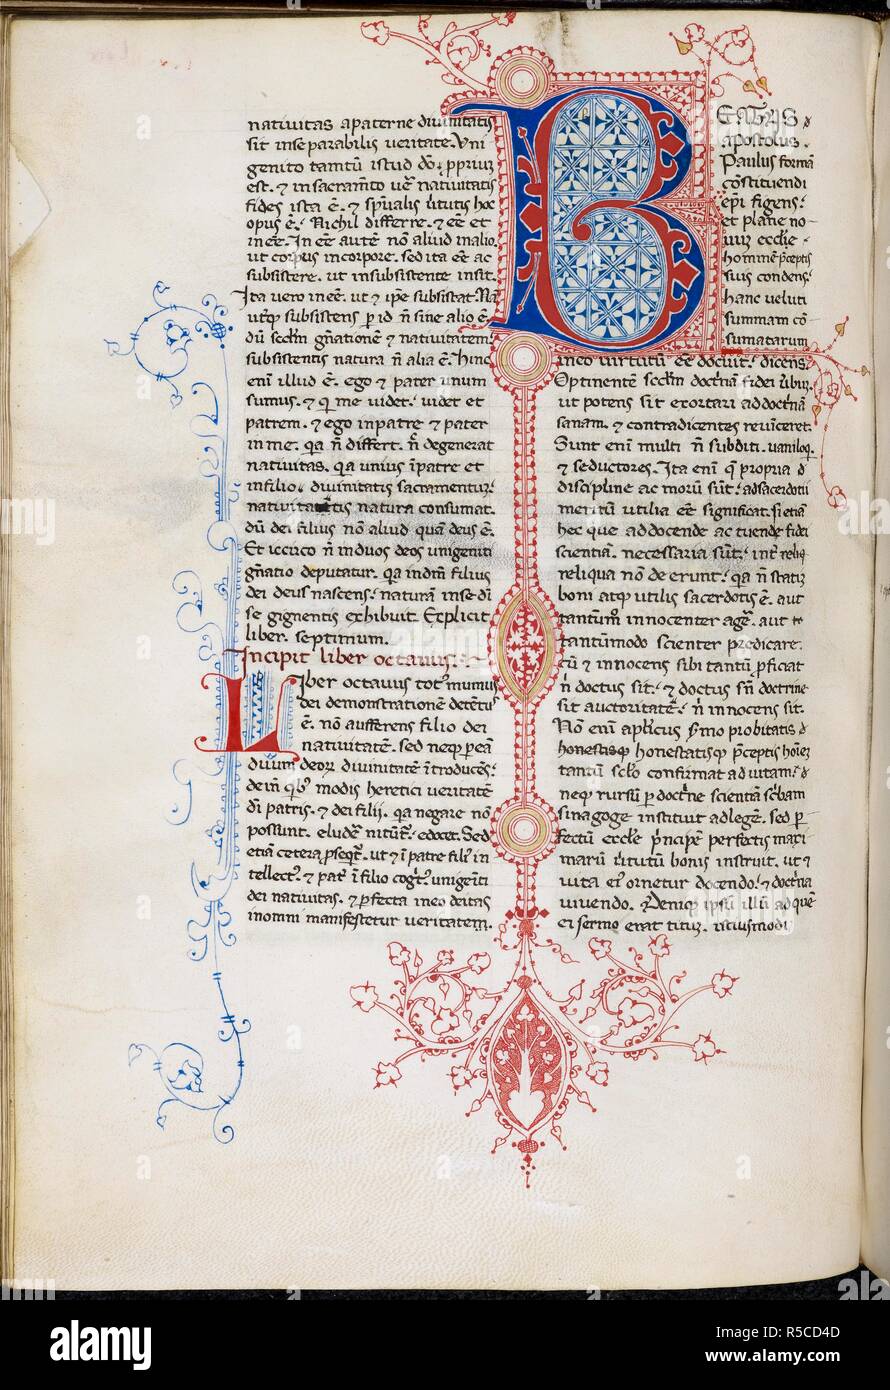 nativitas a paterne divinitatis
sit inseparabilis veritate. Uni
genito tamtũ istud dõ. ꝓpriuʒ
est. ⁊ in sacram̃to uẽ nativitatis
fides ista ẽ. ⁊ sp̃ualis ũtutis hoc
opus ẽ. Nichil differre. ⁊ eẽ et
in eẽ. In eẽ autẽ nõ aliud in alio.
ut corpus in corpore. sed ita eẽ ac
subsistere. ut in subsistente insit.
Ita vero in eẽ. ut ⁊ ip̃e subsistat. Nã
utq̃ subsistens ꝑ id ñ sine alio ẽ.
dũ scdm gñationẽ ⁊ nativitatem
subsistentis natura ñ alia ẽ. hinc
eni illud ẽ. ego ⁊ pater unum
sumus. ⁊ q̃ me videt. videt et
patrem. ⁊ ego in patre ⁊ pater
in me. q̃a ñ differt. ñ degenerat
nativitas. q̃a unius ĩ patre et
in filio. divinitatis sacramentuʒ
nativitatis natura consumat.
dũ dei filius nõ aliud quã deus ẽ.
Et iccirco ñ in duos deos unigeniti
gñatio deputatur. q̃a in dm̃ filius
dei deus nascens. naturã in se di
se gignentis exhibuit. Explicit
liber septimum.
Incipit liber octavus.
Liber octavus totˀ in unius
dei demonstratione detẽtˀ
ẽ. nõ aufferens filio dei
nativitatẽ. sed neqʒ ꝑ eã
duum deoꝝ divinitatẽ ĩtroducẽs.
dein̄ q̃bˀ modis heretici veritatẽ
dĩ patris. ⁊ dei filii. q̃a negare nõ
possunt. eluderẽ nitunt̃. edocet. Sed
etiã cetera ꝓseq̃t̃. ut ⁊ ĩ patre filˀ in
tellectˀ. ⁊ pat̃ ĩ filio cogĩtˀ. unigeniti
dei nativitas. ⁊ ꝑfecta in eo deitas
in omni manifestetur veritatem.
BEATUS
apostolus.
Paulus formã
cõstituendi
ep̃i figens.
et plane no-
vuʒ eccl̃ie
hominẽ p̃ceptis
suis condens.
hanc veluti
summam cõ-
sumatarum
in eo virtutũ eẽ docuit. dicens.
Optinentẽ scdm doctr̃nã fidei ũbuʒ.
ut potens sit exortari ad doctr̃nã
sanam. ⁊ contradicentes revincere.
Sunt eni multi ñ subditi. vaniloq̃.
⁊ seductores. Ita eni q̃ propria d
discipline ac morũ sũt. ad sacerdotii
meritũ utilia eẽ significat. si etiã
hec que ad docende ac tuende fidei
scientiã. necessaria sũt. int̃ reliq̃
reliqua nõ deerunt. q̃a ñ statiʒ
boni atqʒ utilis sacerdotis ẽ. aut
tantũm innocenter agẽ. aut
tantũmodo scienter predicare.
cũ ⁊ innocens sibi tantũ ꝓficiat
ñ doctus sit. ⁊ doctus sñ doctrine
sit auctoritate. ñ innocens sit.
Nõ eni ap̃licus ẽmo probitatis
honestisqʒ honestatisqʒ p̃ceptis hoĩeʒ
tantũ scl̃o confirmat ad vitam.
neqʒ rursũ ꝑ doctr̃ne scientiã scribam
sinagoge instituit ad legẽ. sed ꝑ-
fectũ eccl̃ie p̃ncipẽ perfectis maxi
marũ ũtutũ bonis instruit. ut ⁊
vita eiˀ ornetur docendo. ⁊ doctr̃na
vivendo. Denique ipsũ illũ ad quẽ
ei sermo erat titũ. istiusmodi
a
alamy
alamy stock photo
R5CD4D
www.alamy.com